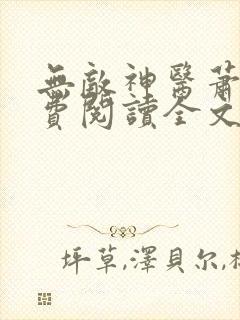 無敵神醫蕭
費閱讀全文
坪草,澤貝尔,